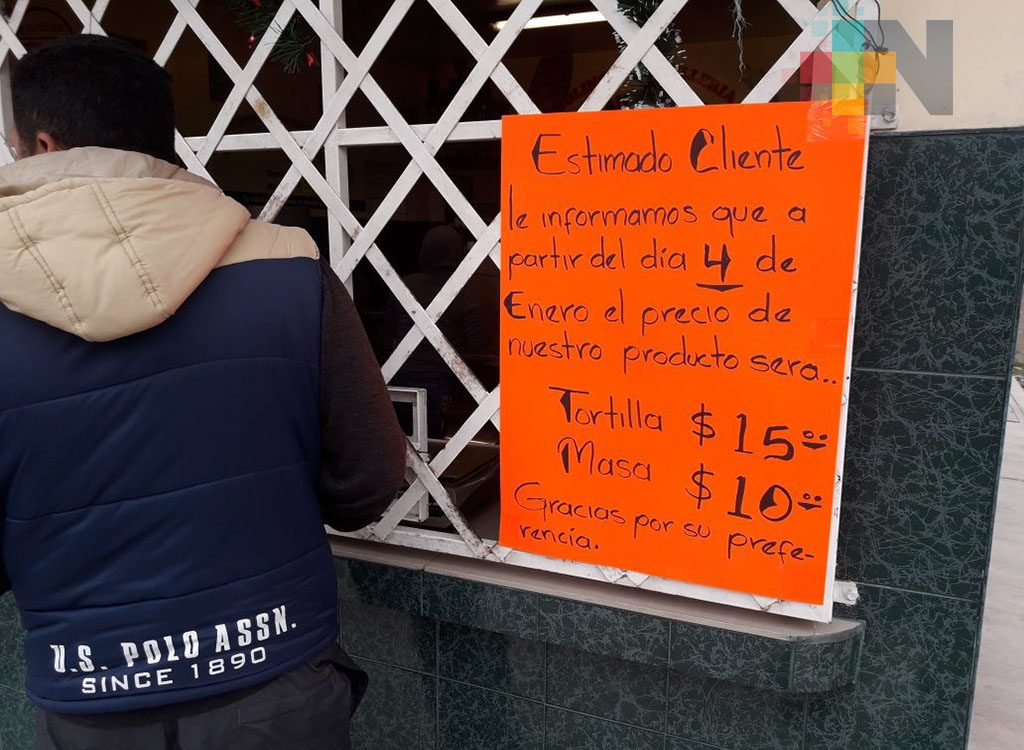 Estimado Cliente
le informamos que a
partir del día 4 de
Enero el precio de
nuestro producto sera...
Tortilla $ 15.00
Masa $ 10.00
Gracias por su prefe-
rencia.
U.S. POLO ASSN.
SINCE 1890
N